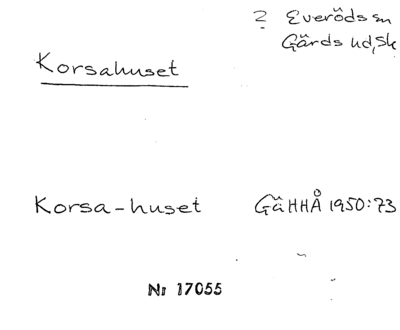 ? Everöds sn
Gärds hd, Sk
Korsahuset
Korsa-huset GäHHÅ 1950:73
Nr 17055